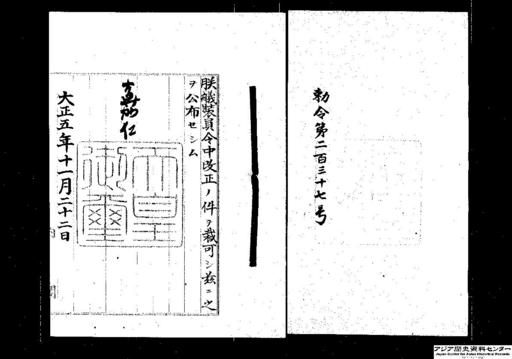 勅令第二百三十七号
朕艤装員令中改正ノ件ヲ裁可シ玆ニ之
ヲ公布セシム
嘉仁
天皇
御璽
大正五年十一月二十二日
アジア歴史資料センター
Japan Center for Asian Historical Records